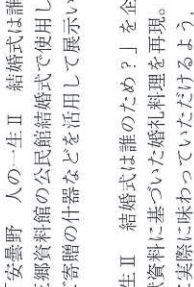 安曇野 人の一生Ⅱ 結婚式は誰
郷資料館の公民館結婚式で使用し
寄贈の什器などを活用して展示い
生Ⅱ 結婚式は誰のため?」を企
資料に基づいた婚礼料理を再現。
実際に味わっていただけるよう、